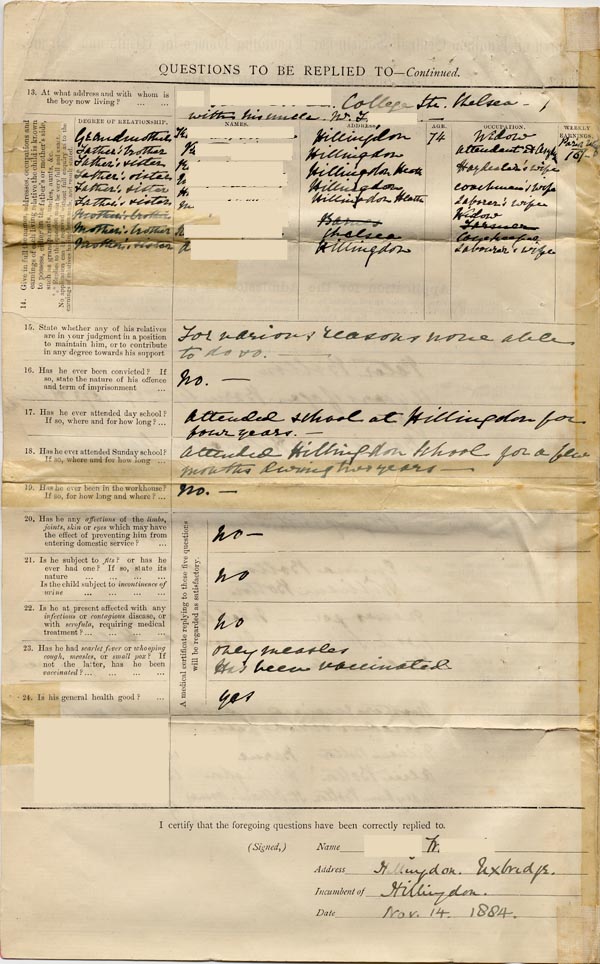 QUESTIONS TO BE REPLIED TO—Continued.
13. At what address and with whom is
the boy now living? ... ...
College Ste. Chelsea
with his uncle Mr. J
14. Give in full the names, addresses, occupations and
earnings of each living relative the child is known
to possess, on the father's or mother's side,
DEGREE OF RELATIONSHIP. NAMES. ADDRESS. AGE. OCCUPATION. WEEKLY EARNINGS.
Grandmother Hillingdon 74 Widow
Father's brother Hillingdon Attendant
Father's sister Hillingdon Heath Haydealer's wife
Father's sister Hillingdon coachman's wife
Father's sister Hillingdon Heath Laborer's wife
Mother's brother Widow
Mother's brother Chelsea
Mother's sister Hillingdon Labourer's wife
15. State whether any of his relatives
are in your judgment in a position
to maintain him, or to contribute
in any degree towards his support
For various reasons none able
to do so.
16. Has he ever been convicted? If
so, state the nature of his offence
and term of imprisonment ...
No. —
17. Has he ever attended day school?
If so, where and for how long? ...
Attended school at Hillingdon for
four years.
18. Has he ever attended Sunday school?
If so, where and for how long ...
Attended Hillingdon School for a few
months during two years —
19. Has he ever been in the workhouse?
If so, for how long and where? ...
No. —
A medical certificate replying to these five questions
will be regarded as satisfactory.
20. Has he any affections of the limbs,
joints, skin or eyes which may have
the effect of preventing him from
entering domestic service? ...
No —
21. Is he subject to fits? or has he
ever had one? If so, state its
nature ... ... ... ...
Is the child subject to incontinence of
urine ... ... ... ...
No
22. Is he at present affected with any
infectious or contagious disease, or
with scrofula, requiring medical
treatment? ... ... ...
No
23. Has he had scarlet fever or whooping
cough, measles, or small pox? If
not the latter, has he been
vaccinated? ... ... ...
Only measles
Has been vaccinated
24. Is his general health good? ...
Yes
I certify that the foregoing questions have been correctly replied to.
(Signed,) Name
Address Hillingdon. Uxbridge.
Incumbent of Hillingdon.
Date Nov. 14. 1884.